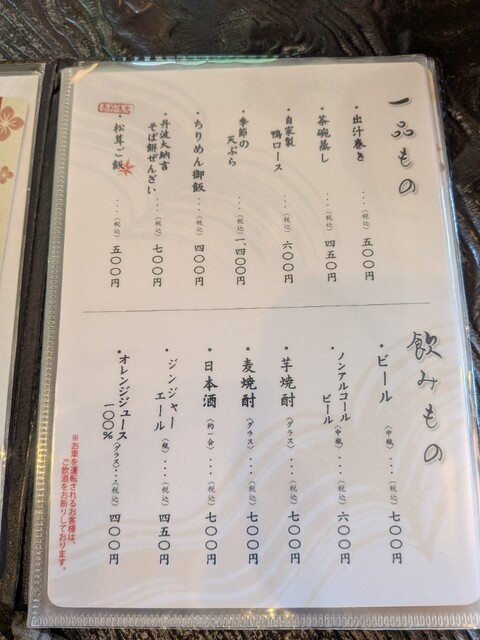 一品もの
・出汁巻き ・・・(税込) 五〇〇円
・茶碗蒸し ・・・(税込) 四五〇円
・自家製
鴨ロース ・・・(税込) 六〇〇円
・季節の
天ぷら ・・・(税込) 一、四〇〇円
・ちりめん御飯 ・・・(税込) 四〇〇円
・丹波大納言
そば餅ぜんざい ・・・(税込) 七〇〇円
・松茸ご飯 ・・・(税込) 五〇〇円
飲みもの
・ビール (中瓶)・・・(税込) 七〇〇円
・ノンアルコール
ビール (中瓶)・・・(税込) 六〇〇円
・芋焼酎 (グラス)・・・(税込) 七〇〇円
・麦焼酎 (グラス)・・・(税込) 七〇〇円
・日本酒 (約一合)・・・(税込) 七〇〇円
・ジンジャー
エール (瓶)・・・(税込) 四五〇円
・オレンジジュース
一〇〇% (グラス)・・・(税込) 四〇〇円
※お車を運転されるお客様は、
ご飲酒をお断りしております。